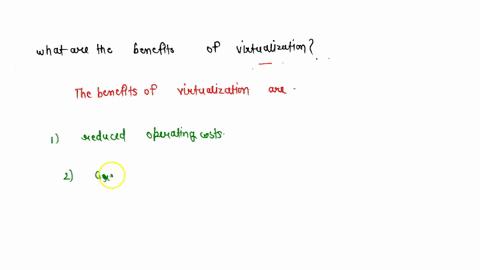 what are the benefits of virtualization?
The benefits of virtualization are.
1) reduced operating costs.
2)